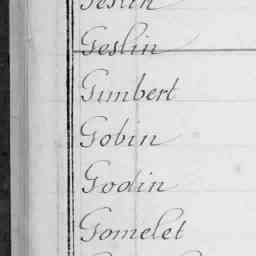 Geslin
Gimbert
Gobin
Godin
Gomelet